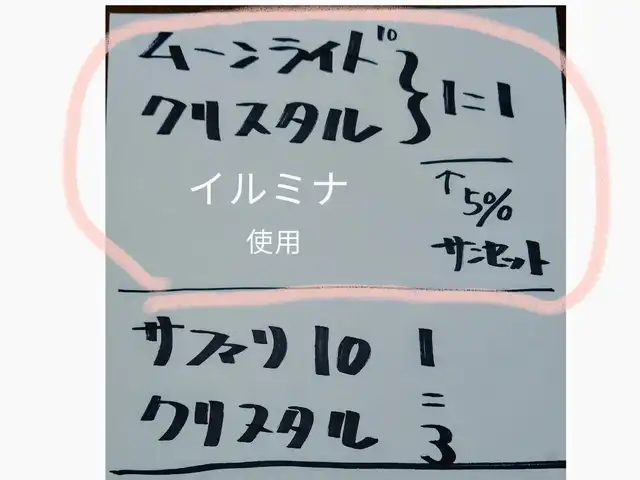 ムーンライト10
クリスタル
1=1
↑5%
サンセット
イルミナ
使用
サファリ10
クリスタル
1=3